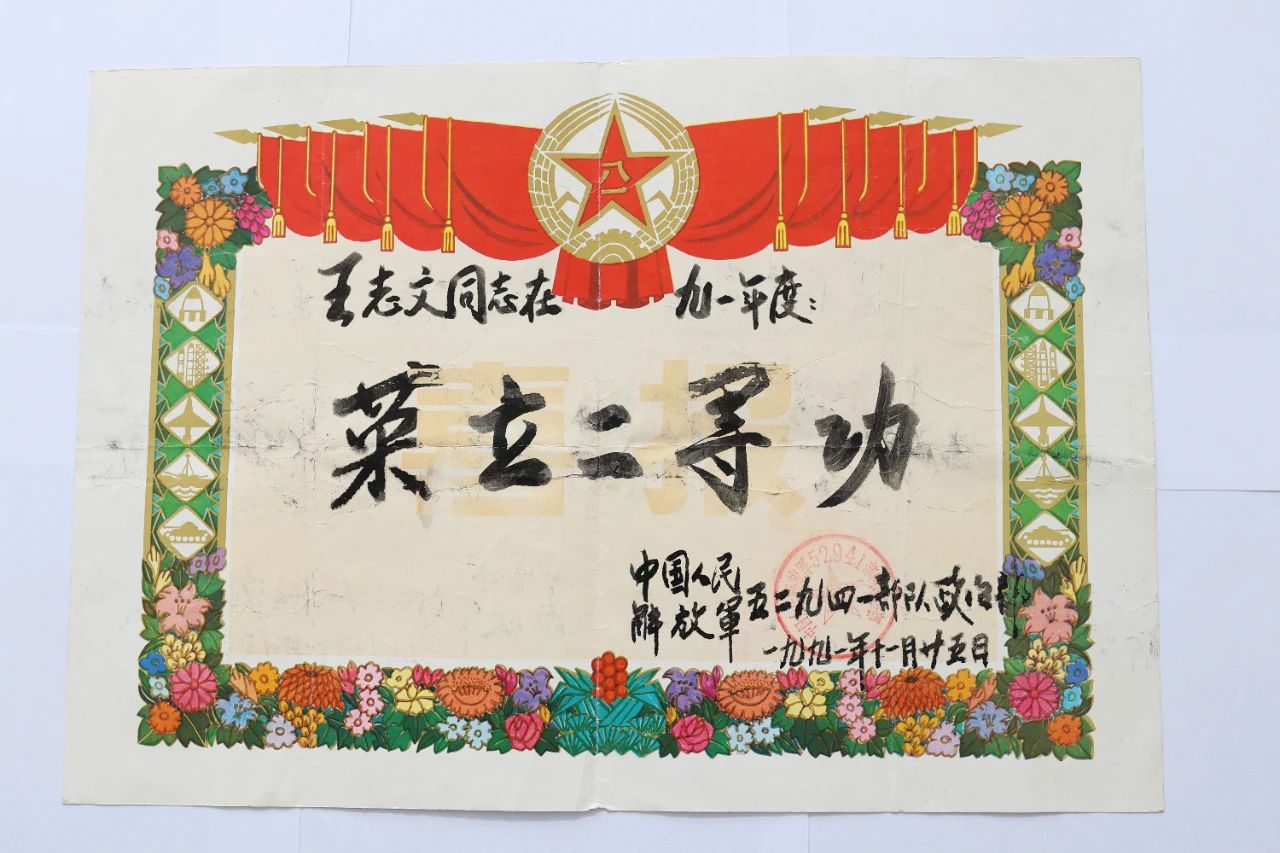 八一
王志文同志在 九一年度:
喜报
荣立二等功
中国人民
解放軍五二九四一部队政治部
一九九一年十一月廿五日
52941